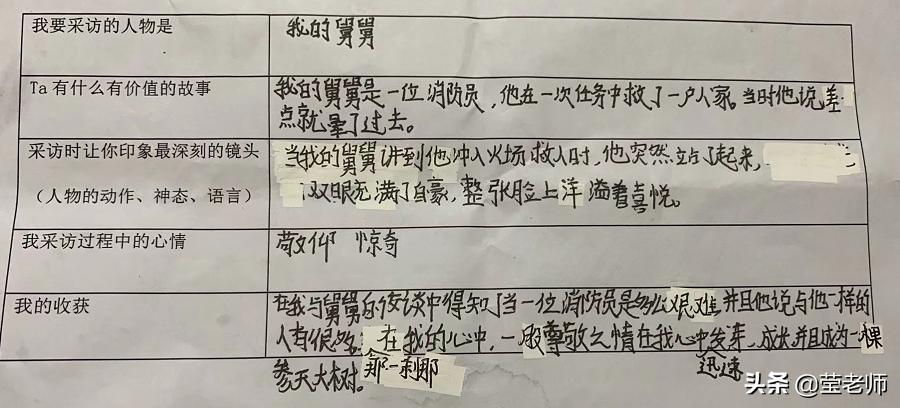 我要采访的人物是
我的舅舅
Ta 有什么有价值的故事
我的舅舅是一位消防员，他在一次任务中救了一户人家。当时他说差
点就晕了过去。
采访时让你印象最深刻的镜头
（人物的动作、神态、语言）
当我的舅舅讲到他冲入火场救人时，他突然站了起来，
双眼充满了自豪，整张脸上洋溢着喜悦。
我采访过程中的心情
敬仰 惊奇
我的收获
在我与舅舅的交谈中得知了当一位消防员是多么艰难，并且他说与他一样的
人有很多。在我的心中，一股尊敬之情在我心中发芽，成长，并且成为一棵
参天大树。那一刹那 迅速
头条 @莹老师